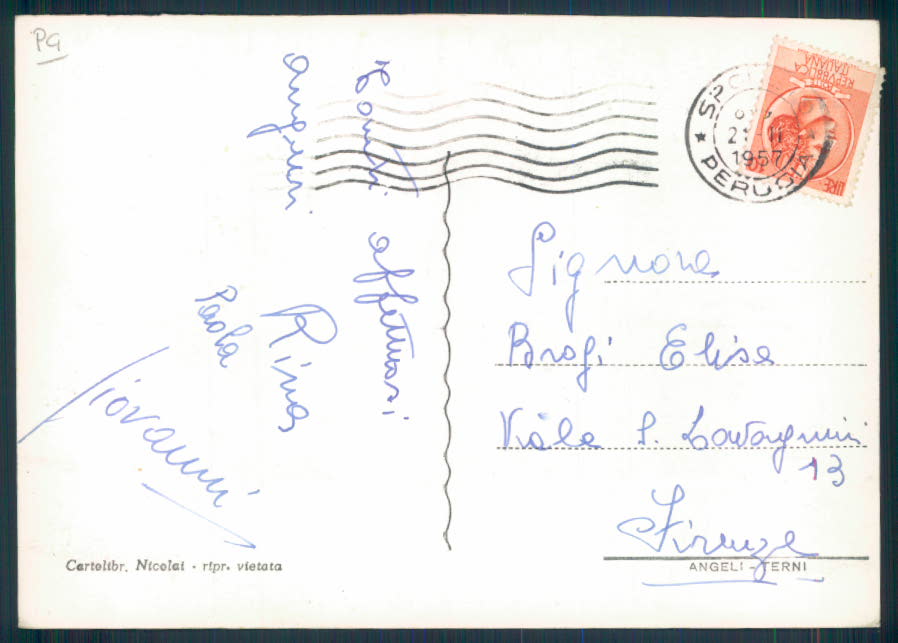 PG
Tanti affettuosi
auguri
Rina
Paola
Giovanni
SPOL
21-11
1957
PERUGIA
REPUBBLICA
ITALIANA
LIRE
Signora
Brogi Elisa
Viale S. Lavagnini
13
Firenze
Cartolibr. Nicolai - ripr. vietata
ANGELI - TERNI